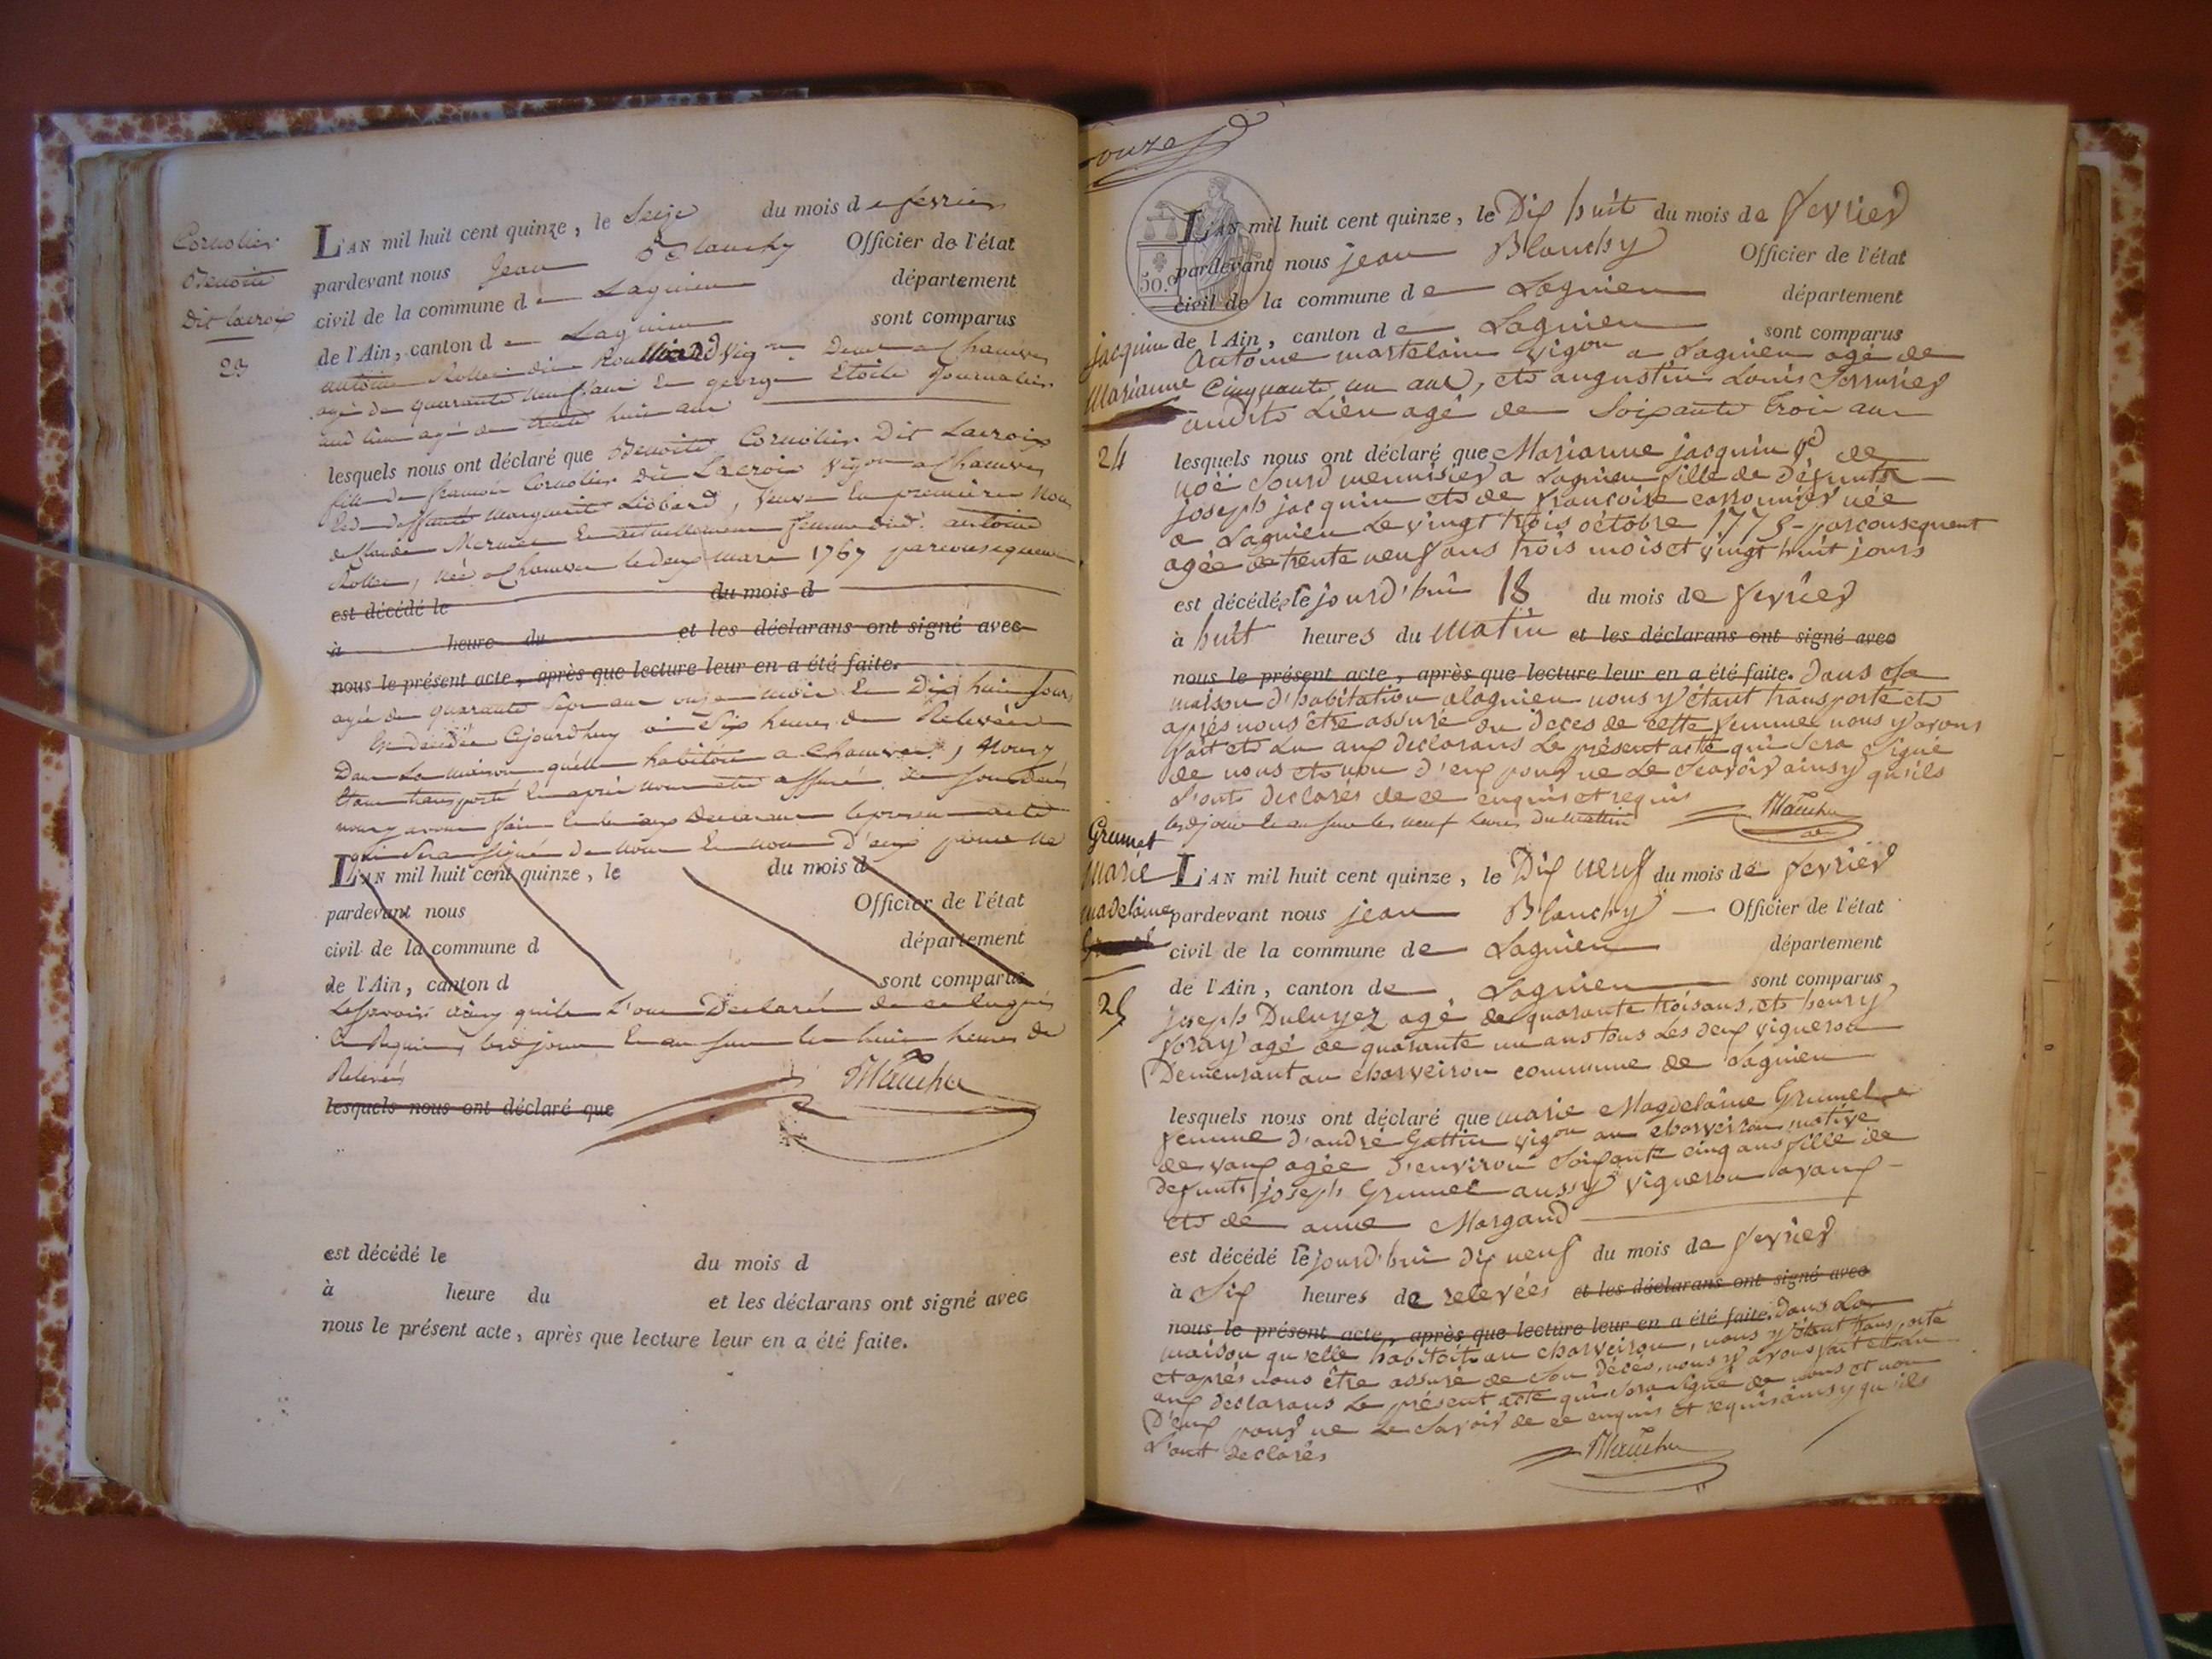 Cornolier
Benoite
Dit Lacroix
23
L'AN mil huit cent quinze, le Seize du mois de fevrier
pardevant nous Jean Blanchy Officier de l'état
civil de la commune de Lagnieu département
de l'Ain, canton de Lagnieu sont comparus
antoine Rollet dit vigon Dem a Chauvez
agé de quarante neuf ans Et george Etoile Journalier
aud lieu agé de trente huit ans
lesquels nous ont déclaré que Benoite Cornolier Dit Lacroix
fille de françois Cornolier Dit Lacroix vigon a Chauvez
Et de deffunte Marguerite Liobard, veuve En premiere
de Claude Mermet Et actuellement femme dud. antoine
Rollet, née a Chauvez le deux mars 1767 parconsequent
est décédé le du mois d
à heure du et les déclarans ont signé avec
nous le présent acte, après que lecture leur en a été faite.
agée de quarante sept ans onze mois Et Dix huit jours
Est decedée Cejourdhuy à Six heures de Relevée
Dans La maison quelle habitoit a Chauvez, Nous y
Etant transporté Et après nous etre assuré de son deces
nous y avons fait Et lu aux declarans le present acte
qui Sera signé de nous Et non D'eux pour ne
L'AN mil huit cent quinze, le du mois d
pardevant nous Officier de l'état
civil de la commune d département
de l'Ain, canton d sont comparus
Le savoir ainsy quils L'ont Declaré de ce Enquis
Et Requis, lesd jour Et an sur les huit heures de
Relevée
Blanchy
lesquels nous ont déclaré que
est décédé le du mois d
à heure du et les déclarans ont signé avec
nous le présent acte, après que lecture leur en a été faite.
onze
50.c
jacquin
Marianne
24
L'AN mil huit cent quinze, le Dix huit du mois de fevrier
pardevant nous jean Blanchy Officier de l'état
civil de la commune de Lagnieu département
de l'Ain, canton de Lagnieu sont comparus
Antoine martelain vigon a Lagnieu agé de
Cinquante un ans, et augustin Louis Serrurier
audit Lieu agé de Soixante trois ans
lesquels nous ont déclaré que Marianne jacquin fe de
noë Sourd menuisier a Lagnieu fille de Défunts
joseph jacquin et de françoise carronnier née
a Lagnieu Le vingt trois octobre 1775 parconsequent
agée de trente neuf ans trois mois et vingt huit jours
est décédée le jourd'hui 18 du mois de fevrier
à huit heures du matin et les déclarans ont signé avec
nous le présent acte, après que lecture leur en a été faite. dans sa
maison d'habitation a lagnieu nous y étant transporté et
après nous être assuré du deces de cette femme nous y avons
fait et Lu aux declarans Le présent acte qui sera signé
de nous et non d'eux pour ne Le Scavoir ainsy qu'ils
L'ont declarés de ce enquis et requis
lesd jour Et an sur les neuf heures Du matin
Blanchy
Grumet
marie
madelaine
25
L'AN mil huit cent quinze, le Dix neuf du mois de fevrier
pardevant nous jean Blanchy Officier de l'état
civil de la commune de Lagnieu département
de l'Ain, canton de Lagnieu sont comparus
joseph Duluyez agé de quarante trois ans, et henry
joray agé de quarante un ans tous Les deux vignerons
Demeurant au charveiron commune de Lagnieu
lesquels nous ont déclaré que marie Magdelaine Grumet
femme d'andré Gattin vigon au charveiron native
de vaux agée d'environ Soixante cinq ans fille de
defunts joseph Grumet aussy vigneron a vaux
et de anne Margand
est décédé le jourd'hui dix neuf du mois de fevrier
à Six heures de relevées et les déclarans ont signé avec
nous le présent acte, après que lecture leur en a été faite. dans La
maison qu'elle habitoit au charveiron, nous y étant transporté
et après nous être assuré de son décès, nous y avons fait et Lu
aux declarans Le présent acte qui Sera signé de nous et non
D'eux pour ne Le Savoir de ce enquis et requis ainsy qu'ils
L'ont declarés
Blanchy